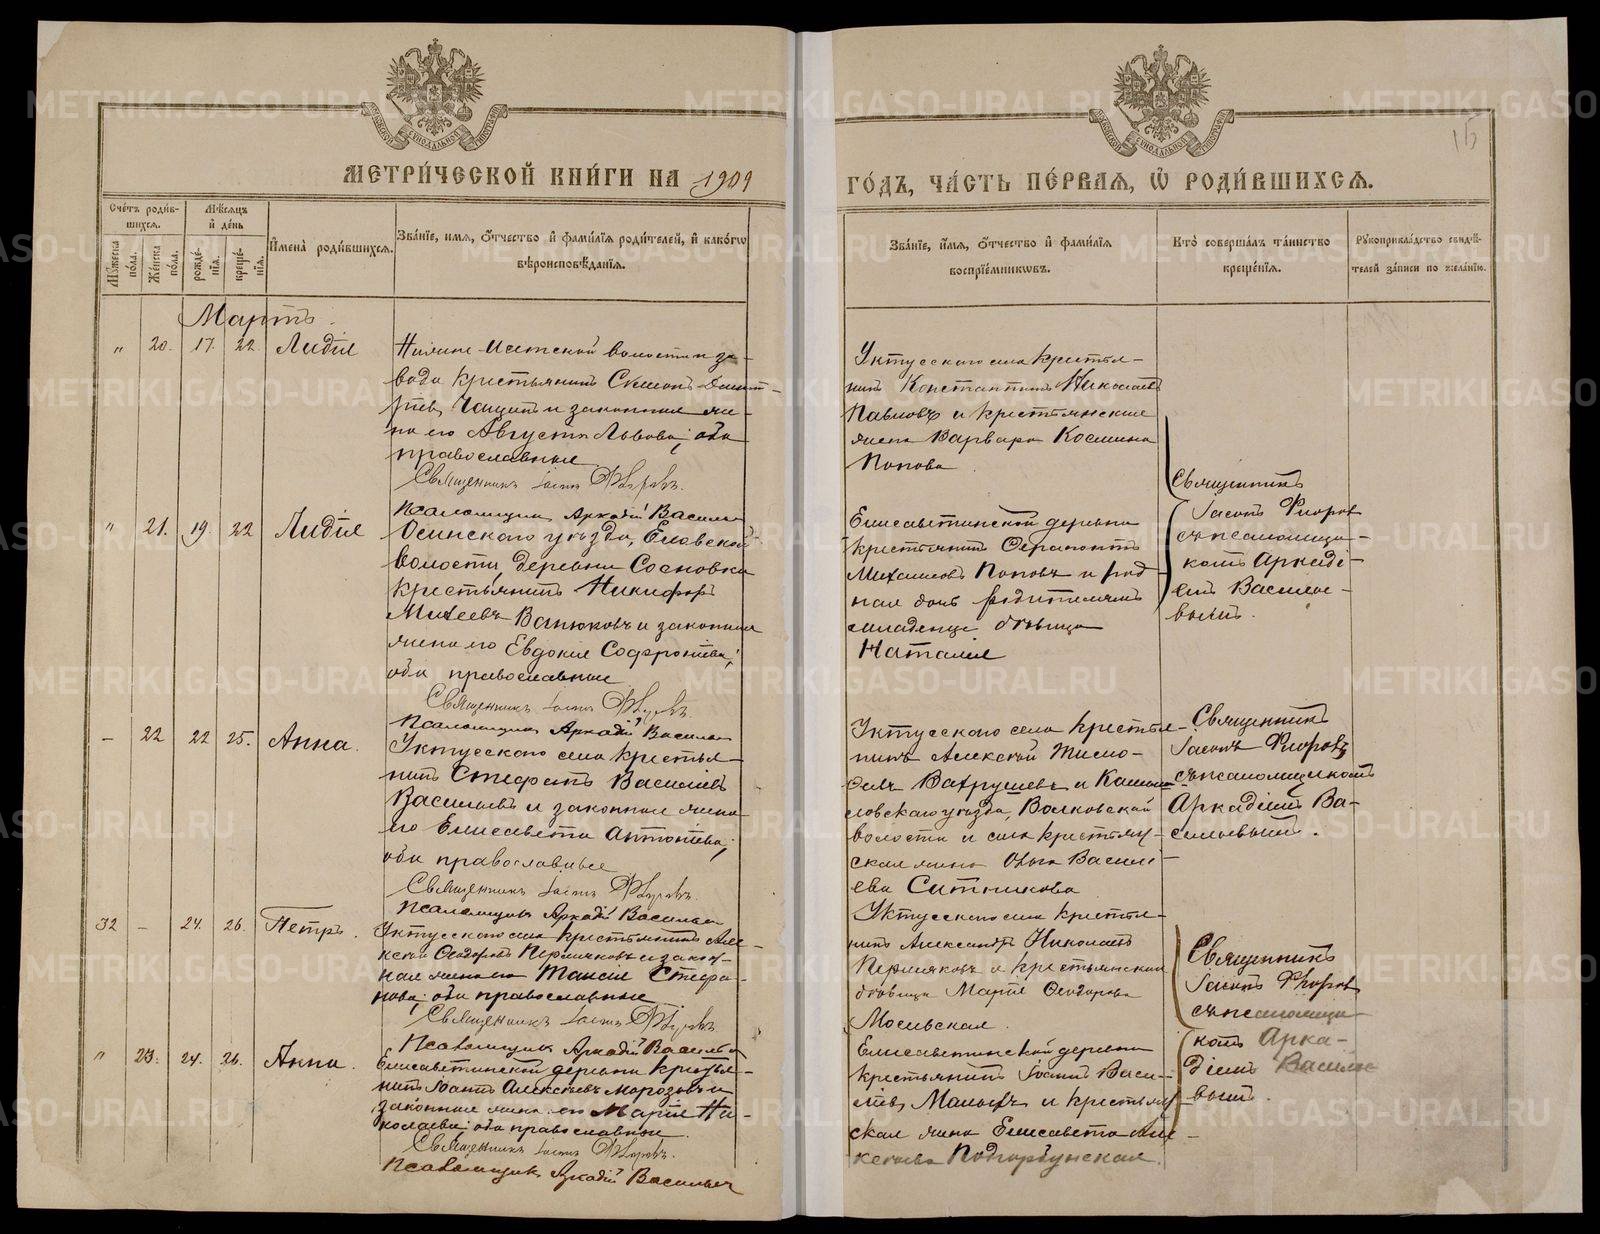 МЕТРИ́ЧЕСКОЙ КНИ́ГИ НА 1909
ГО́ДЪ, ЧА́СТЬ ПЕ́РВАЯ, Ѡ РОДИ́ВШИХСЯ.
15
Сче́тъ роди́вшихся.
Мꙋ́жеска по́ла.
Же́нска по́ла.
Мѣ́сяцъ и де́нь
рожде́нїя.
креще́нїя.
И҆мена̀ роди́вшихся.
Зва́нїе, имя, ѻ҆́тчество и҆ фами́лїя роди́телей, и҆ како́гѡ
вѣроисповѣ́данїя.
Зва́нїе, и҆́мя, ѻ҆́тчество и҆ фами́лїя
воспрїе́мникѡвъ.
Кто̀ соверша́лъ та́инство
креще́нїя.
Рꙋкоприкла́дство свидѣ́-
телей за́писи по жела́нїю.
Мартъ.
" 20. 17. 22. Лидія
Исетской волости и за-
вода крестьянинъ Симеонъ Димит-
ріевъ и законная же-
на его Августа Львова; оба
православные
Священникъ Іасонъ Флоровъ.
Псаломщикъ Аркадій Васильев
Уктусскаго села крестья-
нинъ Константинъ Николаевъ
Павловъ и крестьянская
жена Варвара Космина
Попова
Священникъ
Іасонъ Флоров
съ псаломщи-
комъ Аркаді-
емъ Василье-
вымъ.
" 21. 19. 22 Лидія
Осинскаго уѣзда, Еловской
волости, деревни Сосновки
крестьянинъ Никифоръ
Михеевъ Ванюковъ и законная
жена его Евдокія Софроніева;
оба православные
Священникъ Іасонъ Флоровъ.
Псаломщикъ Аркадій Васильев
Елисаветинской деревни
крестьянинъ Ферапонтъ
Михаиловъ Поповъ и род-
ная дочь родителямъ
младенца дѣвица
Наталія
– 22 22 25. Анна.
Уктусскаго села крестья-
нинъ Стефанъ Василіевъ
Васильевъ и законная жена
его Елисавета Антоніева;
оба православные
Священникъ Іасонъ Флоровъ.
Псаломщикъ Аркадій Васильев
Уктусскаго села крестья-
нинъ Алексѣй Тимо-
феевъ Вахрушевъ и Камыш-
ловскаго уѣзда, Волковской
волости и села крестьян-
ская жена Ольга Василі-
ева Ситникова
Священникъ
Іасонъ Флоровъ
съ псаломщикомъ
Аркадіемъ Ва-
сильевымъ.
32 – 24. 26. Петръ.
Уктусскаго села крестьянинъ Але-
ксѣй Феодоровъ Пермяковъ и закон-
ная жена его Таисія Стефа-
нова; оба православные
Священникъ Іасонъ Флоровъ
Псаломщикъ Аркадій Васильев
Уктусскаго села крестья-
нинъ Александръ Николаевъ
Пермяковъ и крестьянская
дѣвица Марія Феодорова
Священникъ
Іасонъ Флоров
съ псаломщи-
комъ Арка-
діемъ Василье-
вымъ.
" 23. 24. 26. Анна.
Елисаветинской деревни крестья-
нинъ Іоаннъ Алексѣевъ Морозовъ и
законная жена его Марія Ни-
колаева; оба православные.
Священникъ Іасонъ Флоровъ.
Псаломщикъ Аркадій Васильев
Елисаветинской деревни
крестьянинъ Іоаннъ Васи-
ліевъ и крестьян-
ская жена Елисавета Але-
ксѣева Подгорбунская.
METRIKI.GASO-URAL.RU